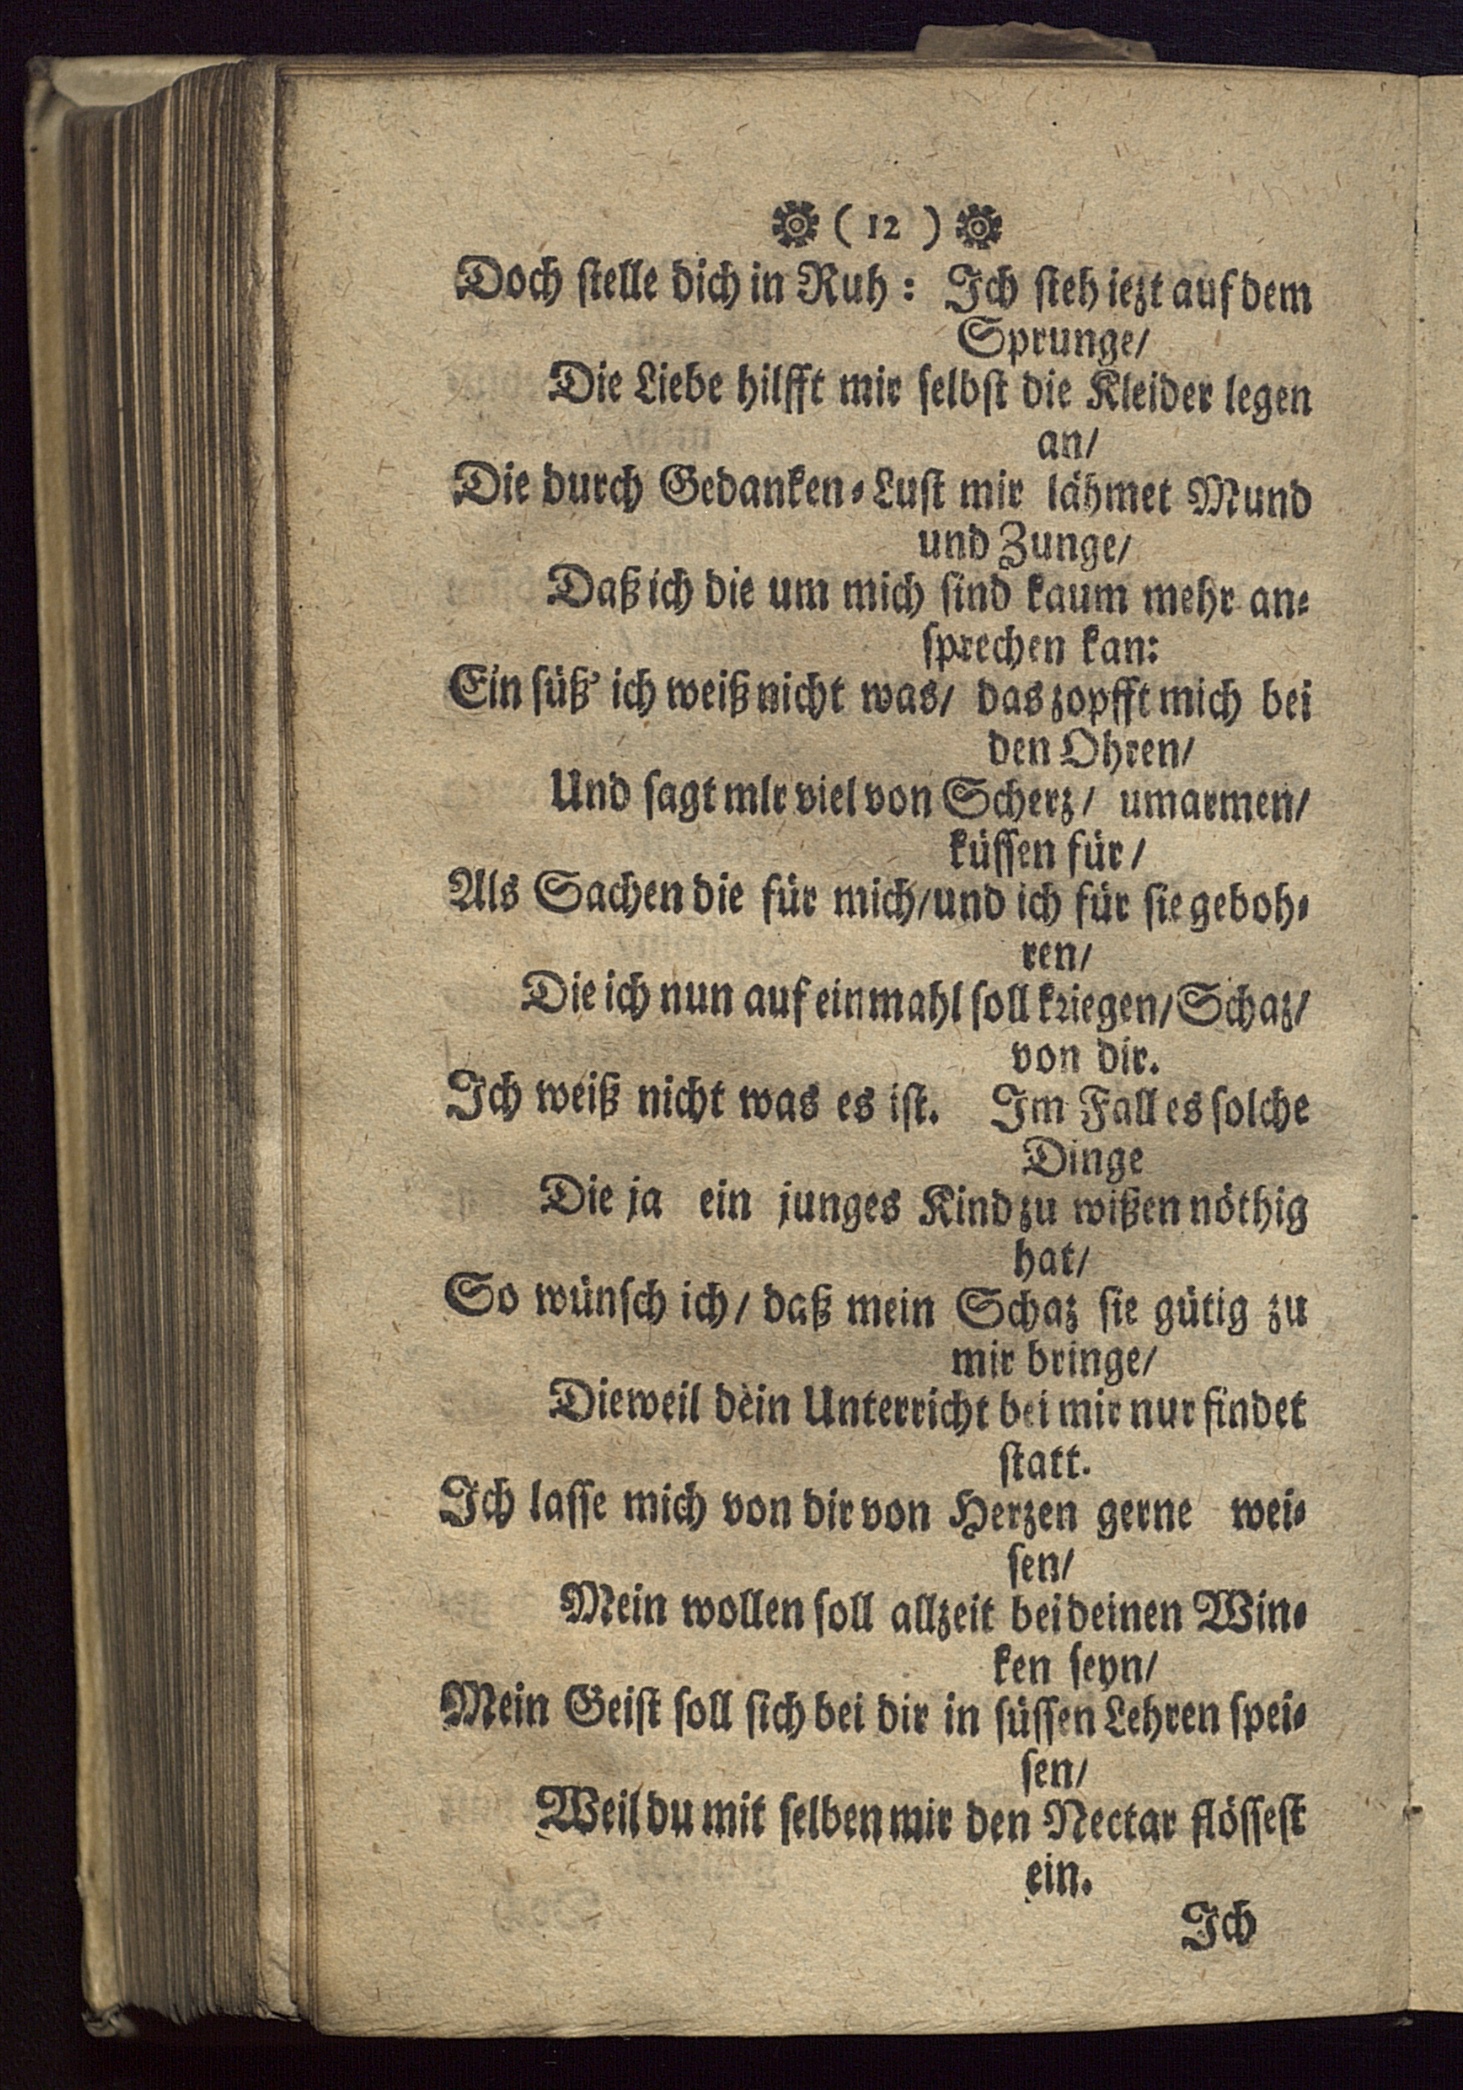 ( 12 )
Doch ſtelle dich in Ruh: Ich ſteh iezt auf dem
Sprunge/
Die Liebe hilfft mir ſelbſt die Kleider legen
an/
Die durch Gedanken⸗Luſt mir lähmet Mund
und Zunge/
Daß ich die um mich ſind kaum mehr an⸗
ſprechen kan:
Ein ſüß’ ich weiß nicht was/ das zopfft mich bei
den Ohren/
Und ſagt mIr viel von Scherz/ umarmen/
küſſen für/
Als Sachen die für mich/und ich für ſie geboh⸗
ren/
Die ich nun auf einmahl ſoll kriegen/Schaz/
von dir.
Ich weiß nicht was es iſt. Im Fall es ſolche
Dinge
Die ja ein junges Kind zu wißen nöthig
hat/
So wünſch ich/ daß mein Schaz ſie gütig zu
mir bringe/
Dieweil dein Unterricht bei mir nur findet
ſtatt.
Ich laſſe mich von dir von Herzen gerne wei⸗
ſen/
Mein wollen ſoll allzeit bei deinen Win⸗
ken ſeyn/
Mein Geiſt ſoll ſich bei dir in ſüſſen Lehren ſpei⸗
ſen/
Weil du mit ſelben mir den Nectar flöſſeſt
ein.
Ich